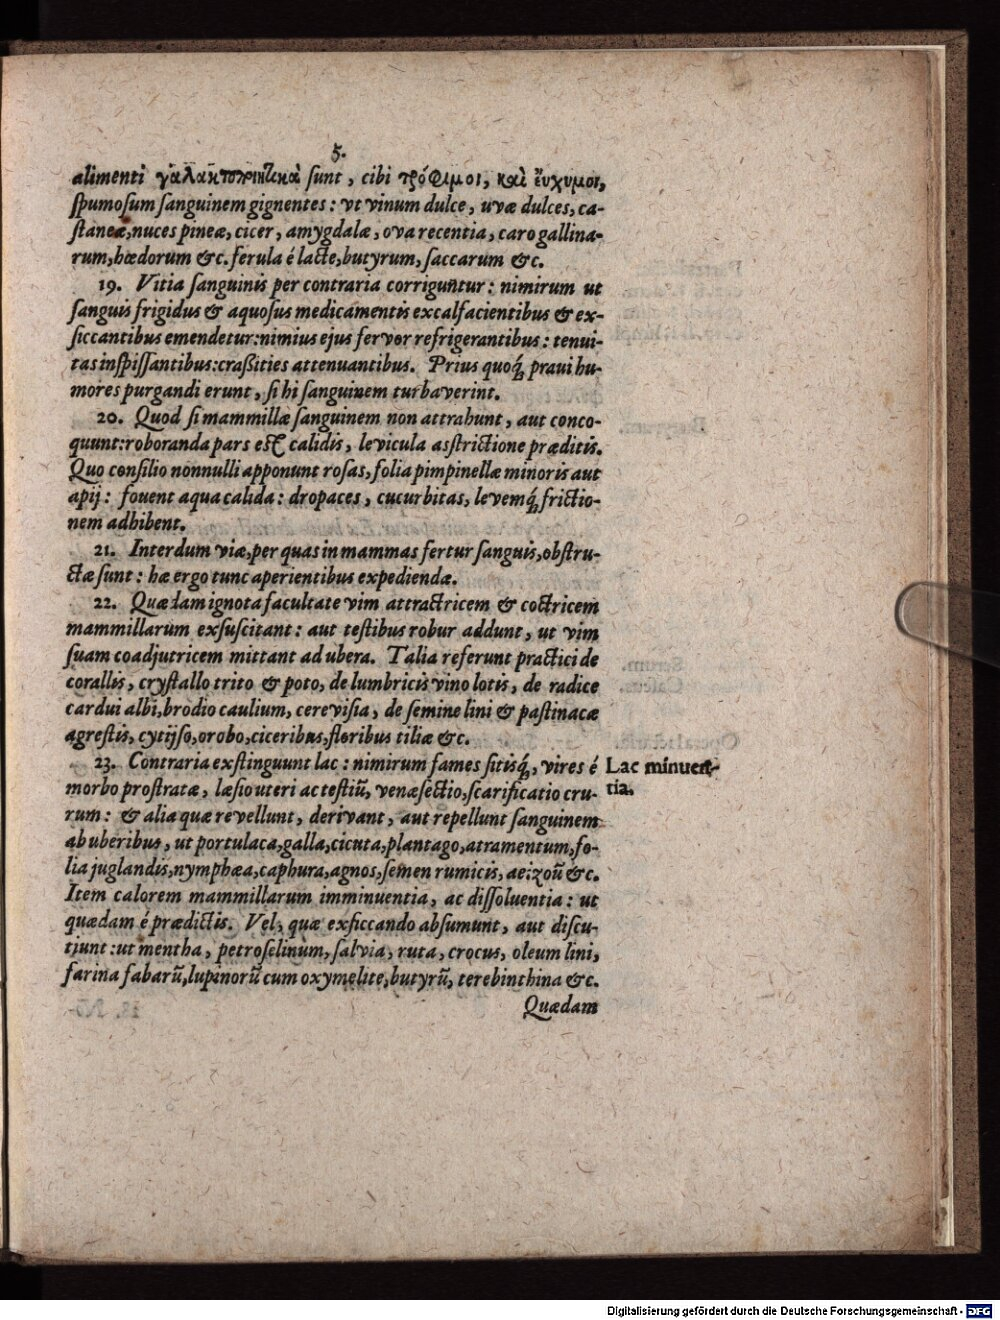 5.
alimenti γαλακτοποιητικὰ sunt, cibi τρόφιμοι, καὶ ἔυχυμοι,
spumosum sanguinem gignentes: vt vinum dulce, uvæ dulces, ca-
staneæ, nuces pineæ, cicer, amygdalæ, ova recentia, caro gallina-
rum, hœdorum &c. ferula é lacte, butyrum, saccarum &c.
19. Vitia sanguinis per contraria corriguntur: nimirum ut
sanguis frigidus & aquosus medicamentis excalfacientibus & ex-
siccantibus emendetur: nimius ejus fervor refrigerantibus: tenui-
tas inspissantibus: crassities attenuantibus. Prius quoq́; praui hu-
mores purgandi erunt, si hi sanguinem turbaverint.
20. Quod si mammillæ sanguinem non attrahunt, aut conco-
quunt: roboranda pars est calidis, levicula asstrictione præditis.
Quo consilio nonnulli apponunt rosas, folia pimpinellæ minoris aut
apij: fouent aqua calida: dropaces, cucurbitas, levemq́; frictio-
nem adhibent.
21. Interdum viæ, per quas in mammas fertur sanguis, obstru-
ctæ sunt: hæ ergo tunc aperientibus expediendæ.
22. Quædam ignota facultate vim attractricem & coctricem
mammillarum exsuscitant: aut testibus robur addunt, ut vim
suam coadjutricem mittant ad ubera. Talia referunt practici de
corallis, crystallo trito & poto, de lumbricis vino lotis, de radice
cardui albi, brodio caulium, cerevisia, de semine lini & pastinacæ
agrestis, cytijso, orobo, ciceribus, floribus tiliæ &c.
23. Contraria exstinguunt lac: nimirum fames sitisq́;, vires é
Lac minuen-
tia.
morbo prostratæ, læsio uteri ac testiũ, venæsectio, scarificatio cru-
rum: & alia quæ revellunt, derivant, aut repellunt sanguinem
ab uberibus, ut portulaca, galla, cicuta, plantago, atramentum, fo-
lia juglandis, nymphæa, caphura, agnos, semen rumicis, aeizoũ &c.
Item calorem mammillarum imminuentia, ac dissoluentia: ut
quædam é prædictis. Vel, quæ exsiccando absumunt, aut discu-
tiunt: ut mentha, petroselinum, salvia, ruta, crocus, oleum lini,
farina fabarũ, lupinorũ cum oxymelite, butyrũ, terebinthina &c.
Quædam
Digitalisierung gefördert durch die Deutsche Forschungsgemeinschaft - DFG